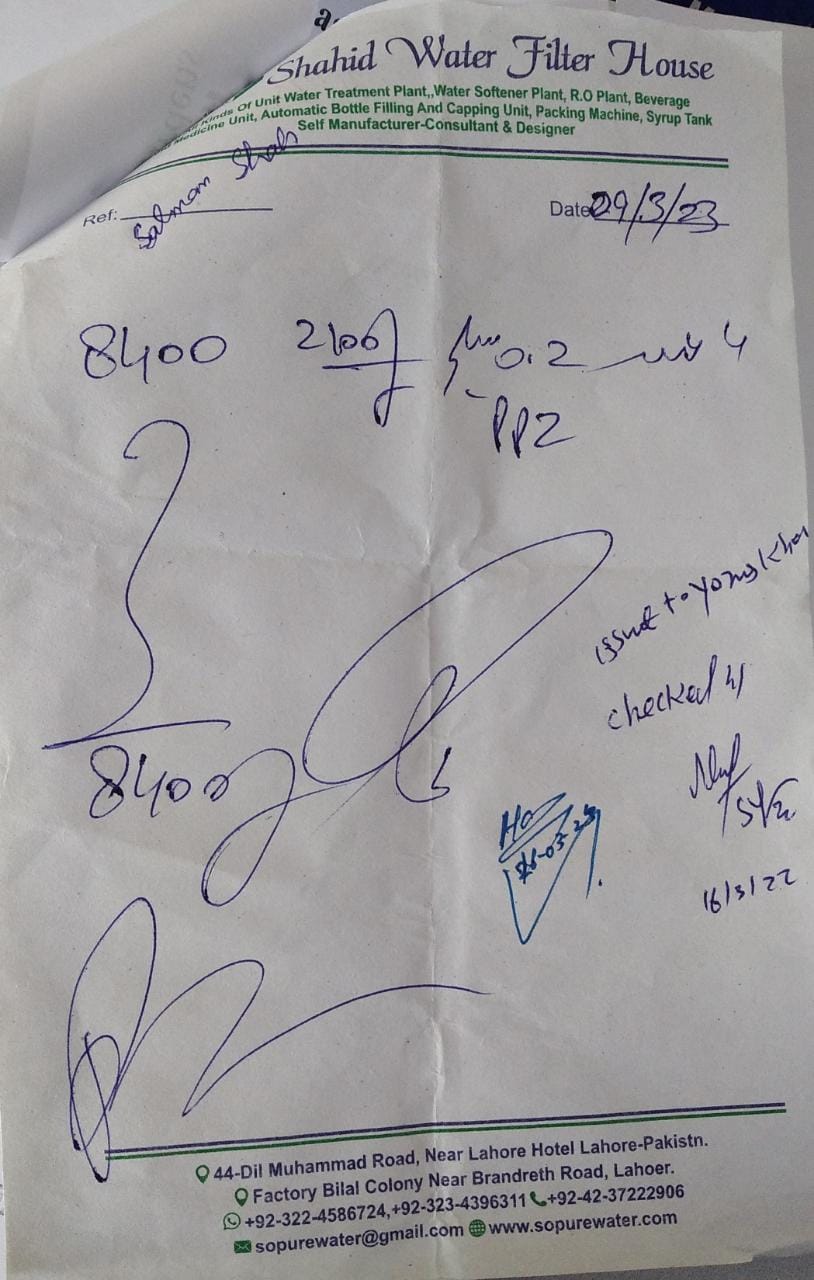 Shahid Water Filter House
Kinds Of Unit Water Treatment Plant,,Water Softener Plant, R.O Plant, Beverage
Medicine Unit, Automatic Bottle Filling And Capping Unit, Packing Machine, Syrup Tank
Self Manufacturer-Consultant & Designer
Ref: Salman Shah
Date 29/3/23
8400 2100 0.2 4
PP2
issue to Khan
checked by
8400
16/3/22
44-Dil Muhammad Road, Near Lahore Hotel Lahore-Pakistn.
Factory Bilal Colony Near Brandreth Road, Lahoer.
+92-322-4586724,+92-323-4396311 +92-42-37222906
sopurewater@gmail.com www.sopurewater.com